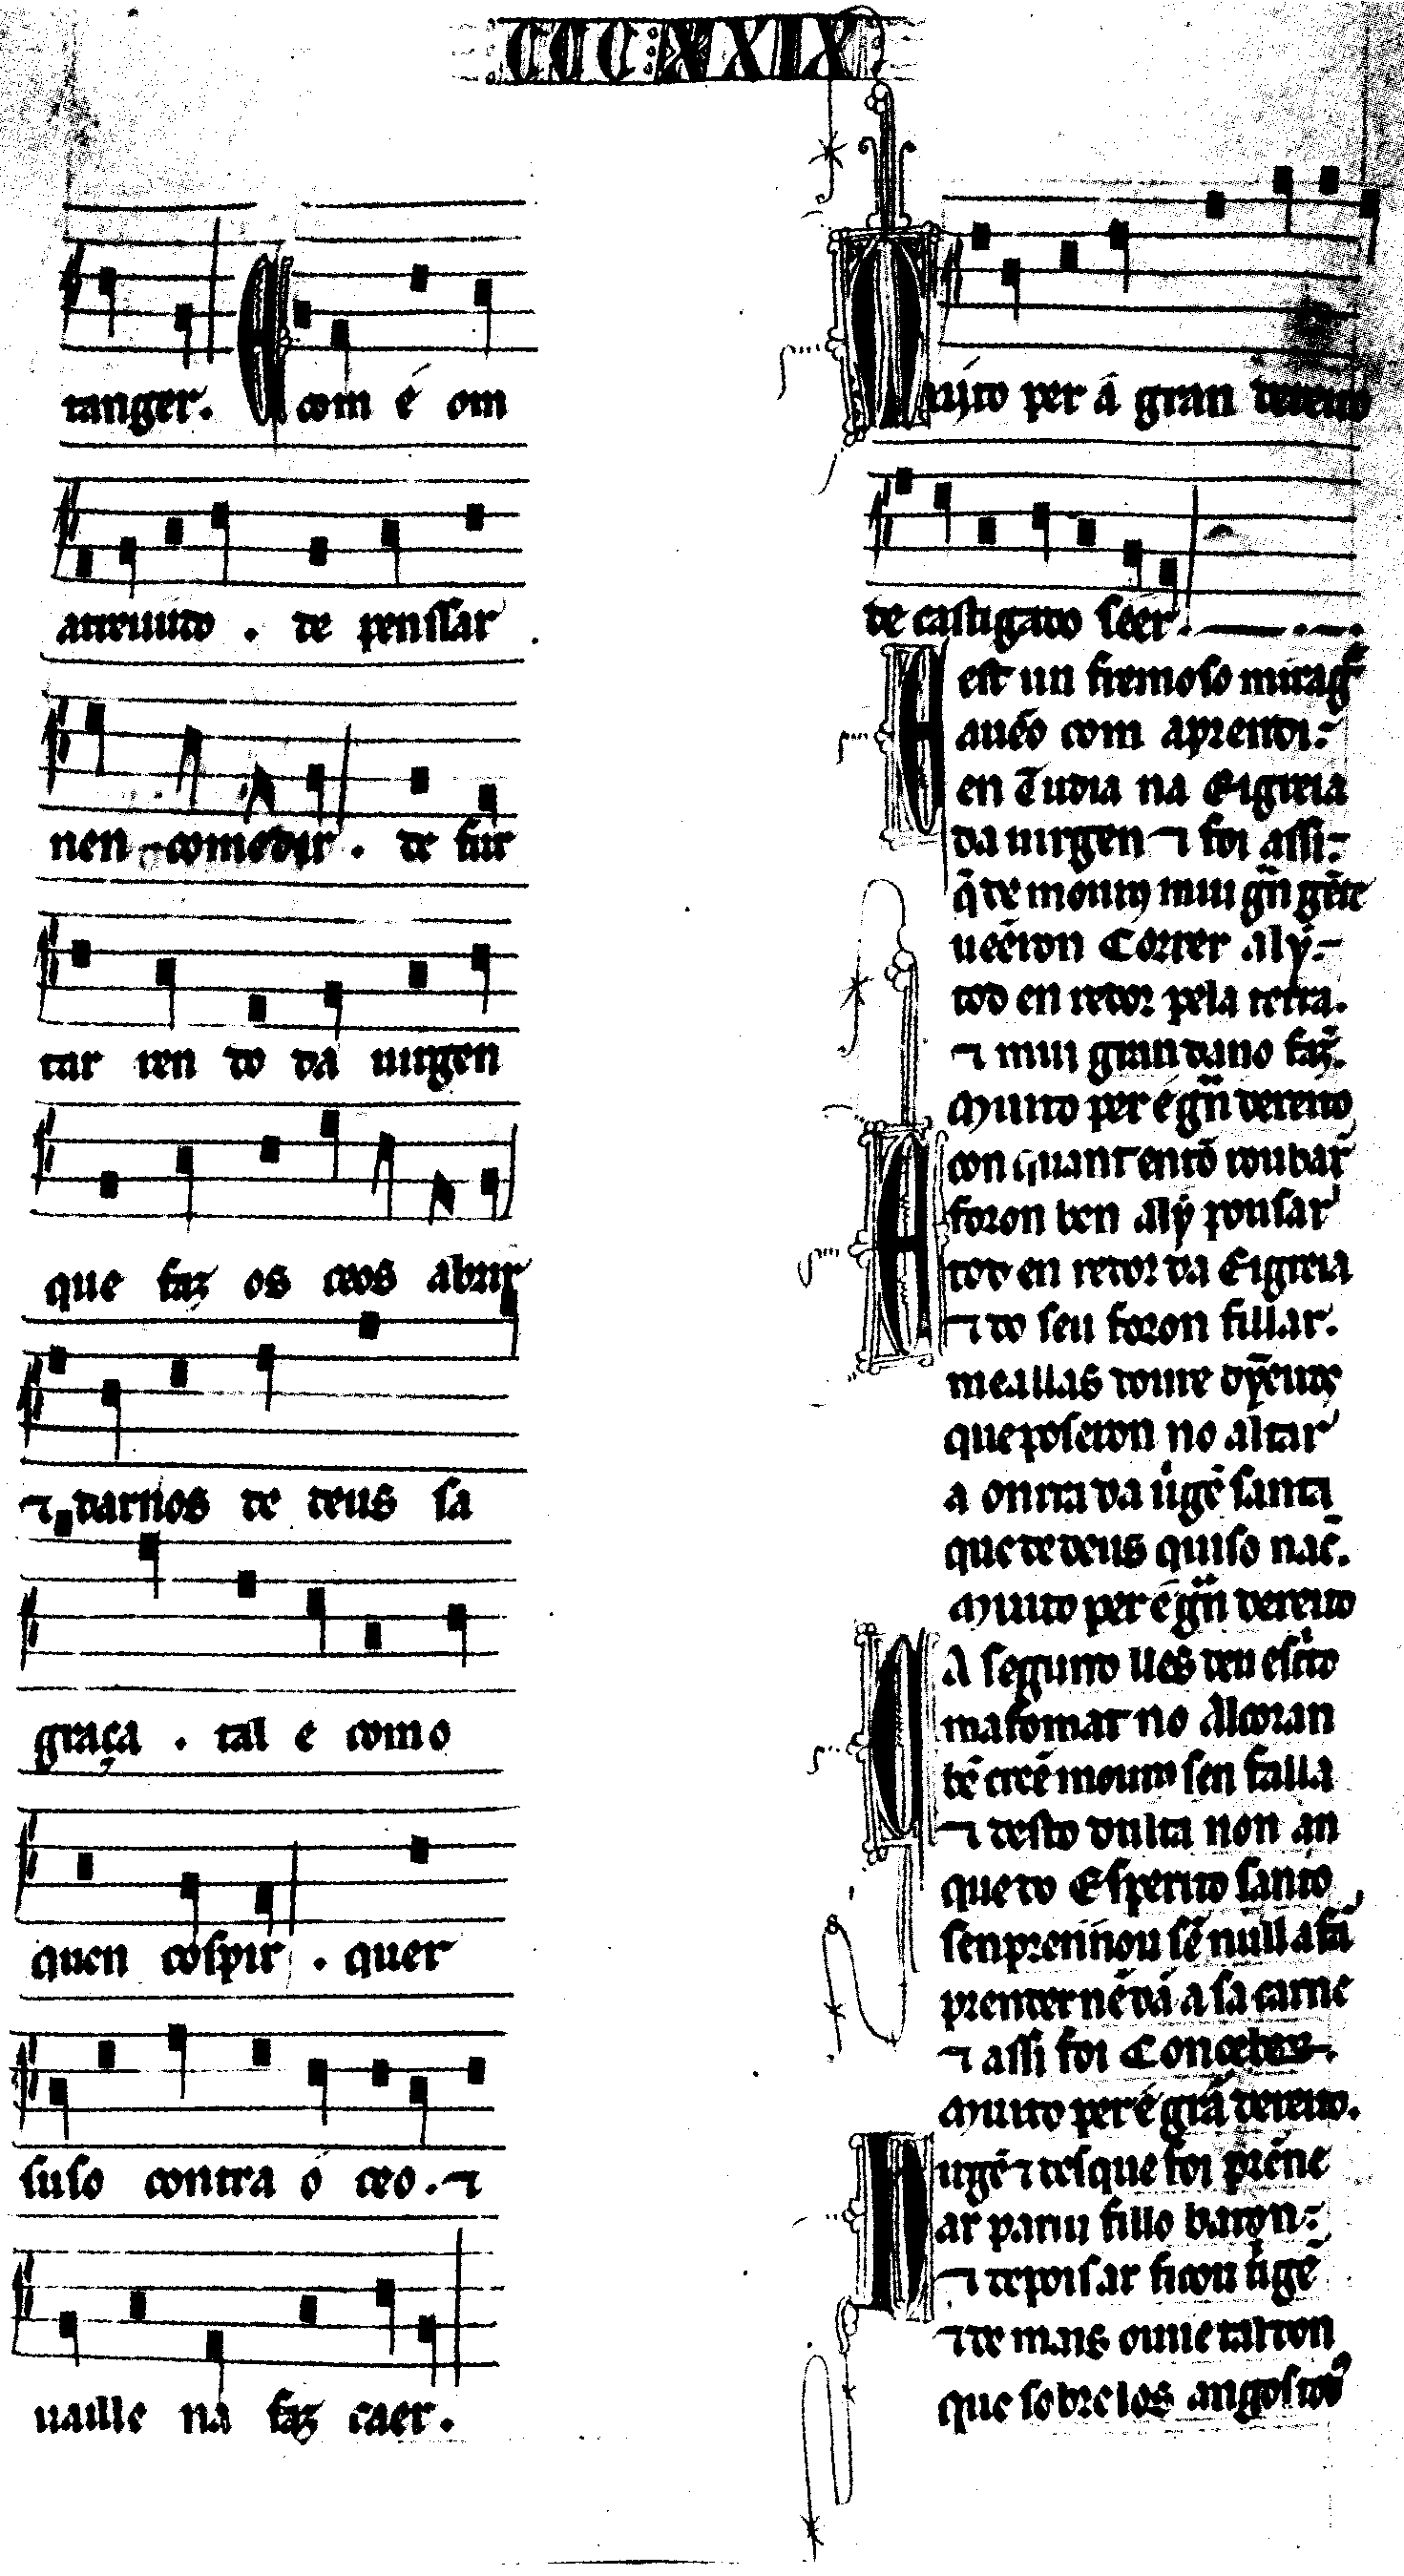 CCC XXIX
tanger. E com é om
atreuudo . de penssar
nen comedir . de fur
tar ren do da uirgen
que faz os ceos abrir
⁊ darnos de deus sa
graça . tal e como
quen cospir . quer
suso contra ó ceo . ⁊
uaille na faz caer .
Muito per á gran dereito
de castigado seer .
est un fremoso miragr̄
auēo com aprendi :-
en Tudia na Eigreia
da uirgen ⁊ foi assi :-
q̄ de mouros mui gr̄n gēte
ueēron Correr aly :-
tod en redor pela terra .
⁊ mui gran dano faz̄ .
Muito per é gr̄n dereito
con quant entō roubar̄
foron ben alý pousar
tod en redor da Eigreia
⁊ do seu foron fillar .
meallas
que poseron no altar
a onrra da uigē santa
que de deus quiso nac̄ .
Muito per é gr̄n dereito
A segundo lles deu escrito
mafomat no Alcoran
bē creē mouros sen falla
⁊ desto dulta non an
que do Esperito santo
senprennou sē null afā
prender nē dā a sa carne
⁊ assi foi Concebeu .
Muito per é grā dereito .
uirgē ⁊ des que foi prēne
ar pariu fillo baron :-
⁊ depois ar ficou uigē
⁊ de mais ouue tal don
que sobre los angos todos